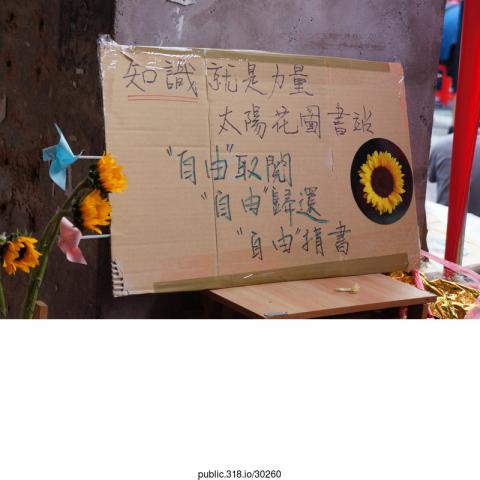 知識就是力量
太陽花圖書站
"自由"取閱
"自由"歸還
"自由"捐書
public.318.io/30260